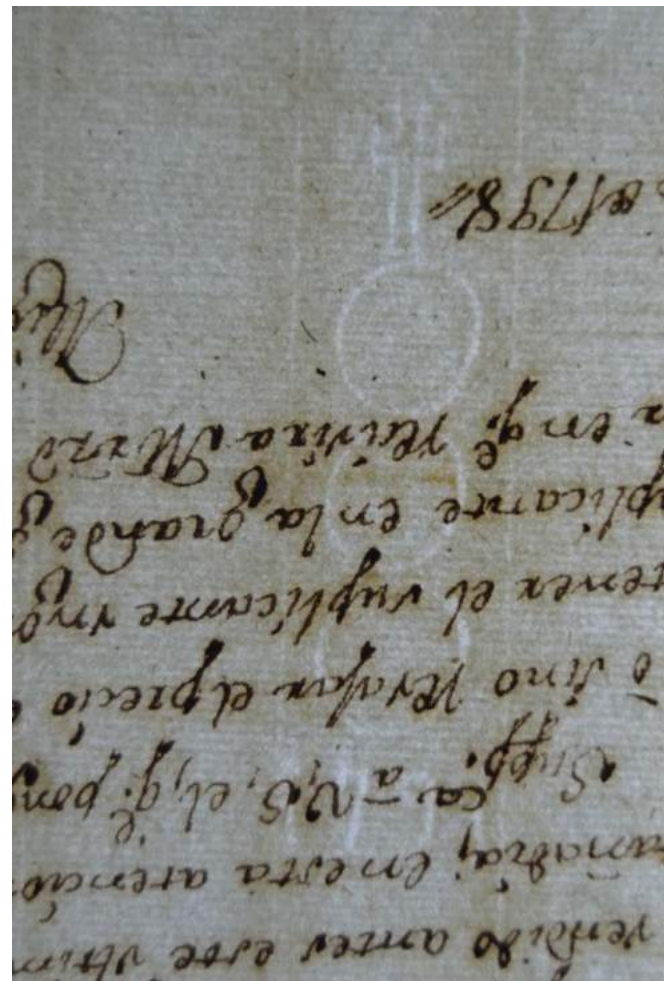 vendido antes este vltim
en esta atencio
Supp.ca a V.S. el q.e pon
ō sino revajar el precio
tener el suplicante vno
plicante en la grande
a en q.e recivira Mrzd
Mig
e 1798